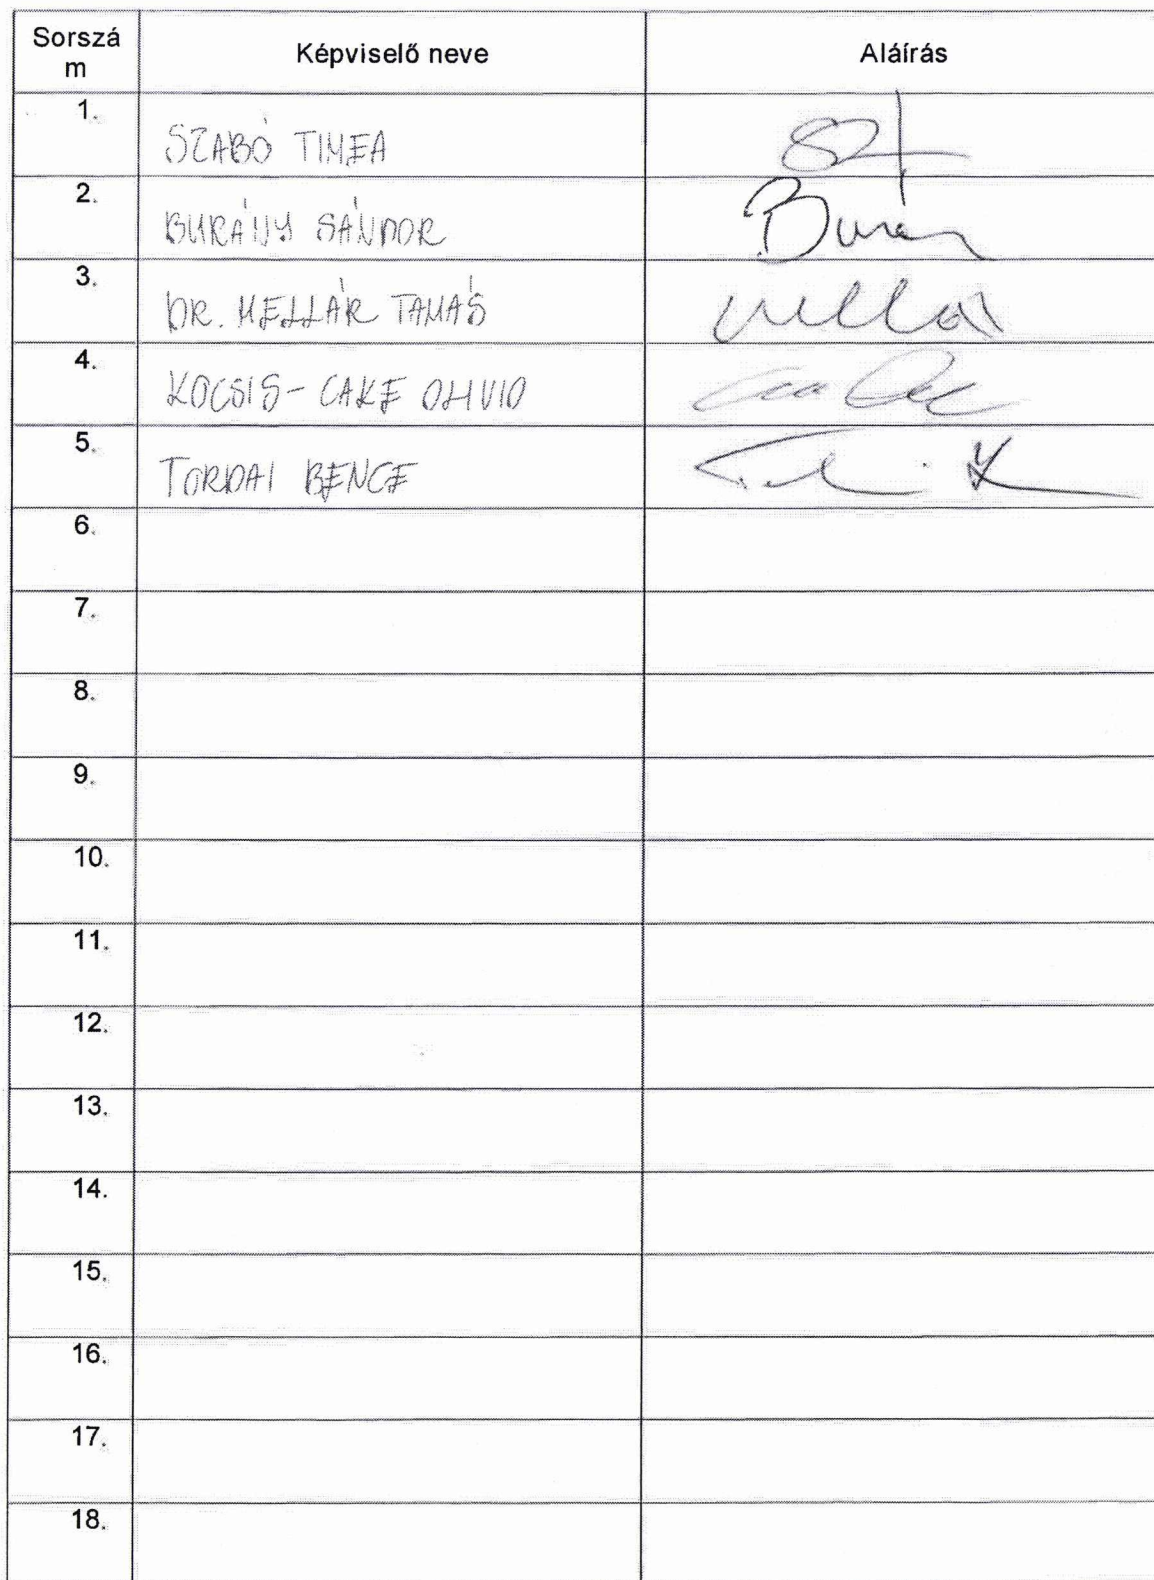 Sorszá
m
Képviselő neve
Aláírás
1.
SZABÓ TIMEA
2.
BURÁNY SÁNDOR
Burán
3.
DR. MELLÁR TAMÁS
Mellár
4.
KOCSIS-CAKE OLIVIO
5.
TORDAI BENCE
6.
7.
8.
9.
10.
11.
12.
13.
14.
15.
16.
17.
18.